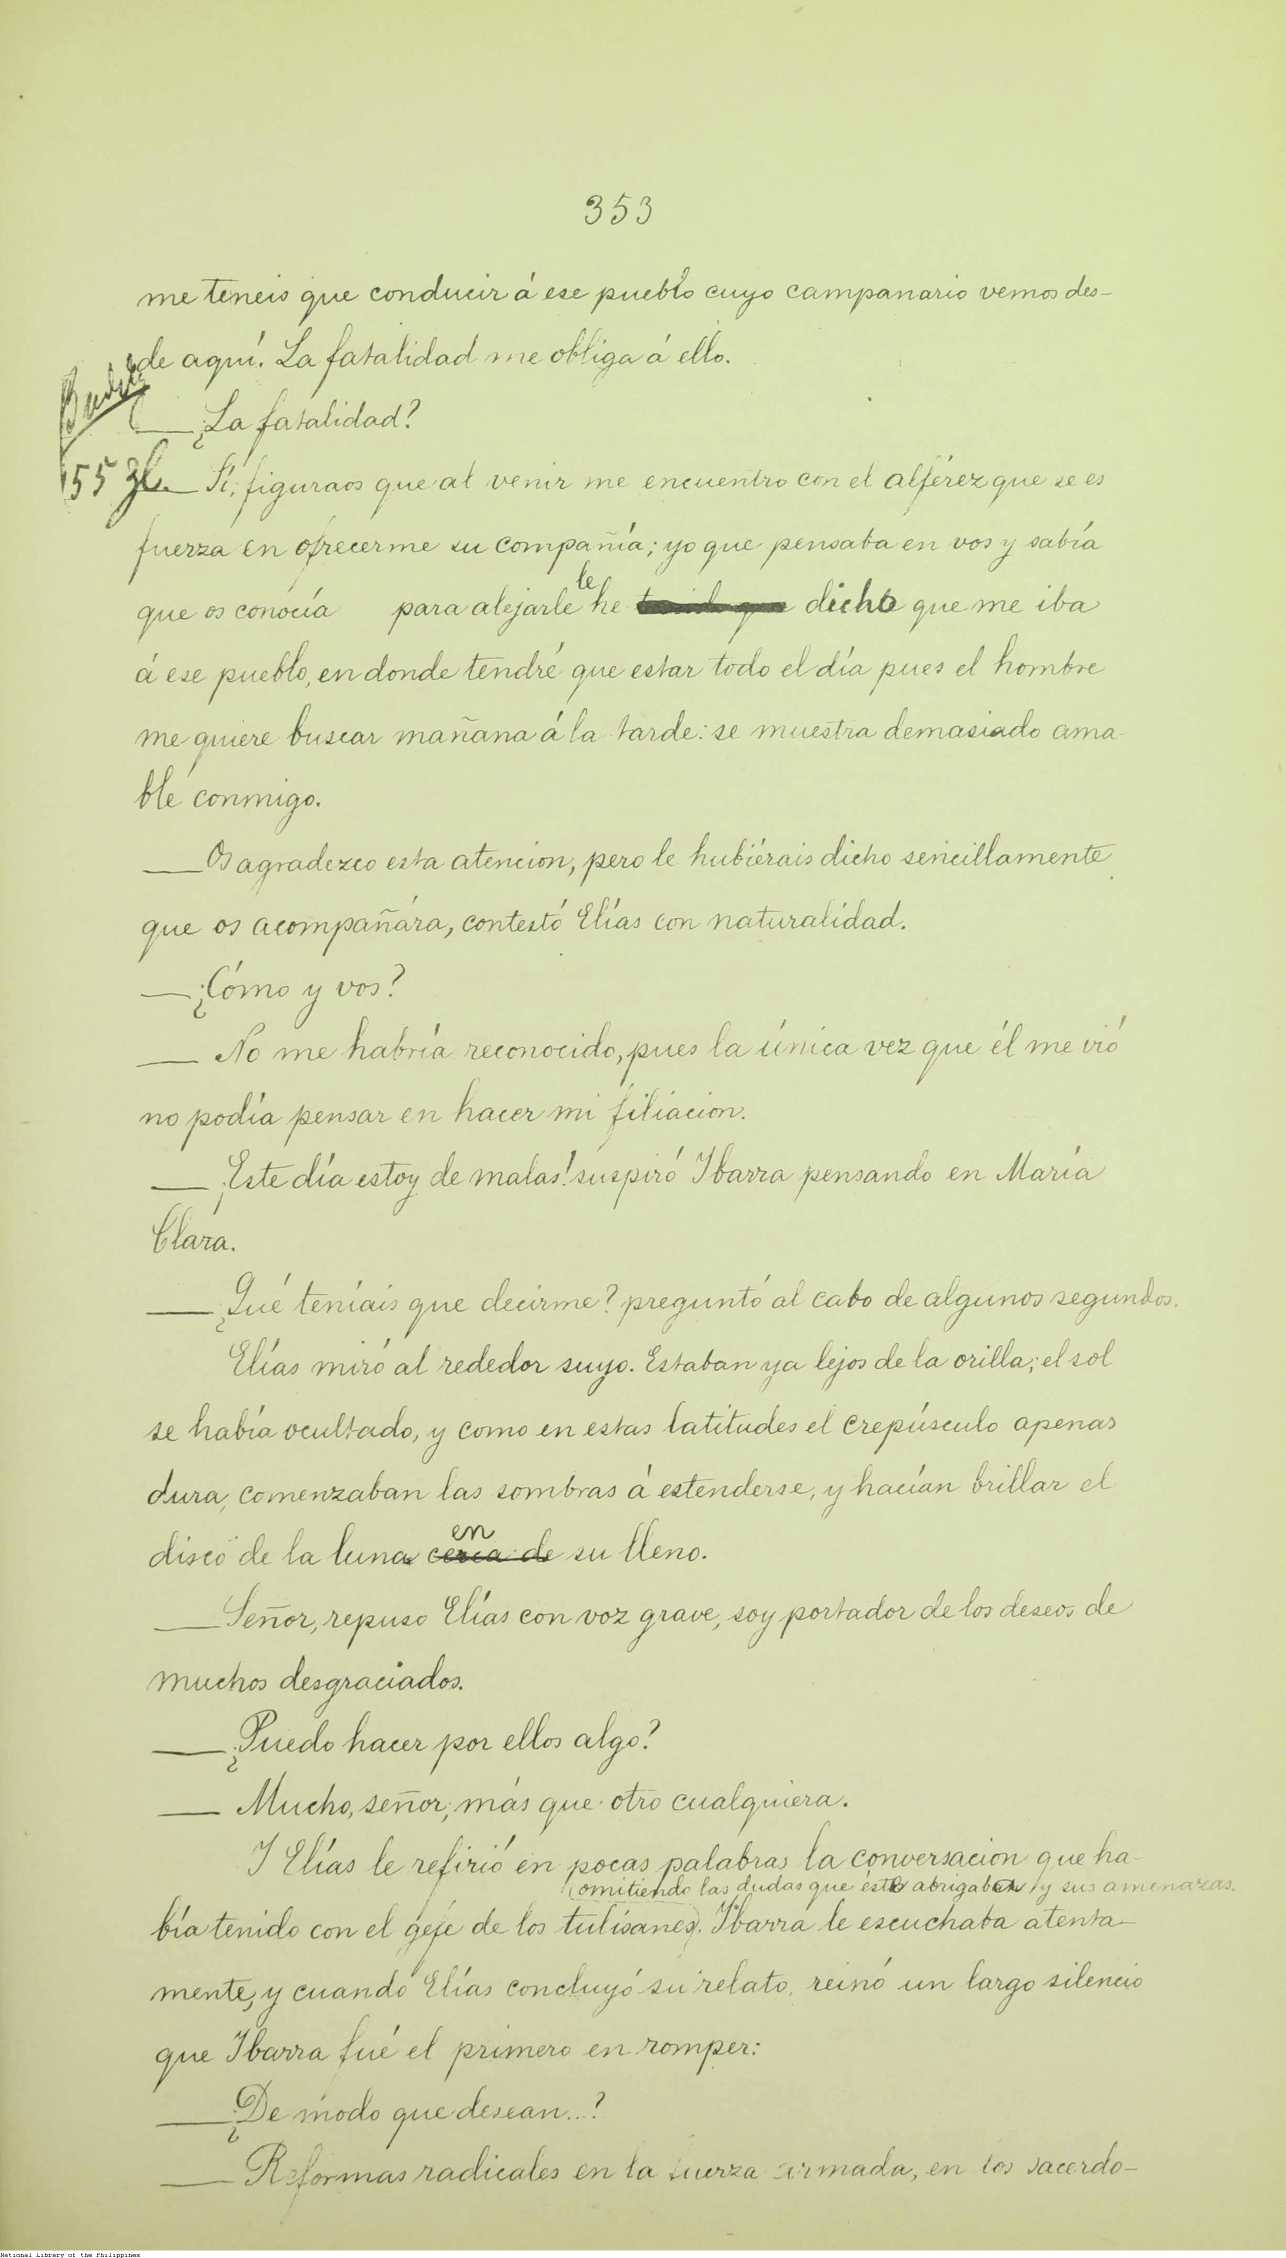 353
me teneis que conducir á ese pueblo cuyo campanario vemos des-
de aquí. La fatalidad me obliga á ello.
— ¿La fatalidad?
155
— Sí, figuraos que al venir me encuentro con el alférez que se es
fuerza en ofrecerme su compañía; yo que pensaba en vos y sabía
le
que os conocía para alejarle he dicho que me iba
á ese pueblo, en donde tendré que estar todo el día pues el hombre
me quiere buscar mañana á la tarde: se muestra demasiado ama-
ble conmigo.
— Os agradezco esta atencion, pero le hubiérais dicho sencillamente
que os acompañára, contestó Elías con naturalidad.
— ¿Cómo y vos?
— No me habría reconocido, pues la única vez que él me vió
no podía pensar en hacer mi filiacion.
— ¡Este día estoy de malas! suspiró Ibarra pensando en María
Clara.
— ¿Qué teníais que decirme? preguntó al cabo de algunos segundos.
Elías miró al rededor suyo. Estaban ya lejos de la orilla; el sol
se había ocultado, y como en estas latitudes el crepúsculo apenas
dura, comenzaban las sombras á estenderse, y hacían brillar el
en
disco de la luna cerca de su lleno.
— Señor, repuso Elías con voz grave, soy portador de los deseos de
muchos desgraciados.
— ¿Puedo hacer por ellos algo?
— Mucho, señor, más que otro cualquiera.
I Elías le refirió en pocas palabras la conversacion que ha-
(omitiendo las dudas que éste abrigaba y sus amenazas.
bía tenido con el gefe de los tulisanes). Ibarra le escuchaba atenta-
mente, y cuando Elías concluyó su relato, reinó un largo silencio
que Ibarra fué el primero en romper:
— ¿De modo que desean...?
— Reformas radicales en la fuerza armada, en los sacerdo-
National Library of the Philippines